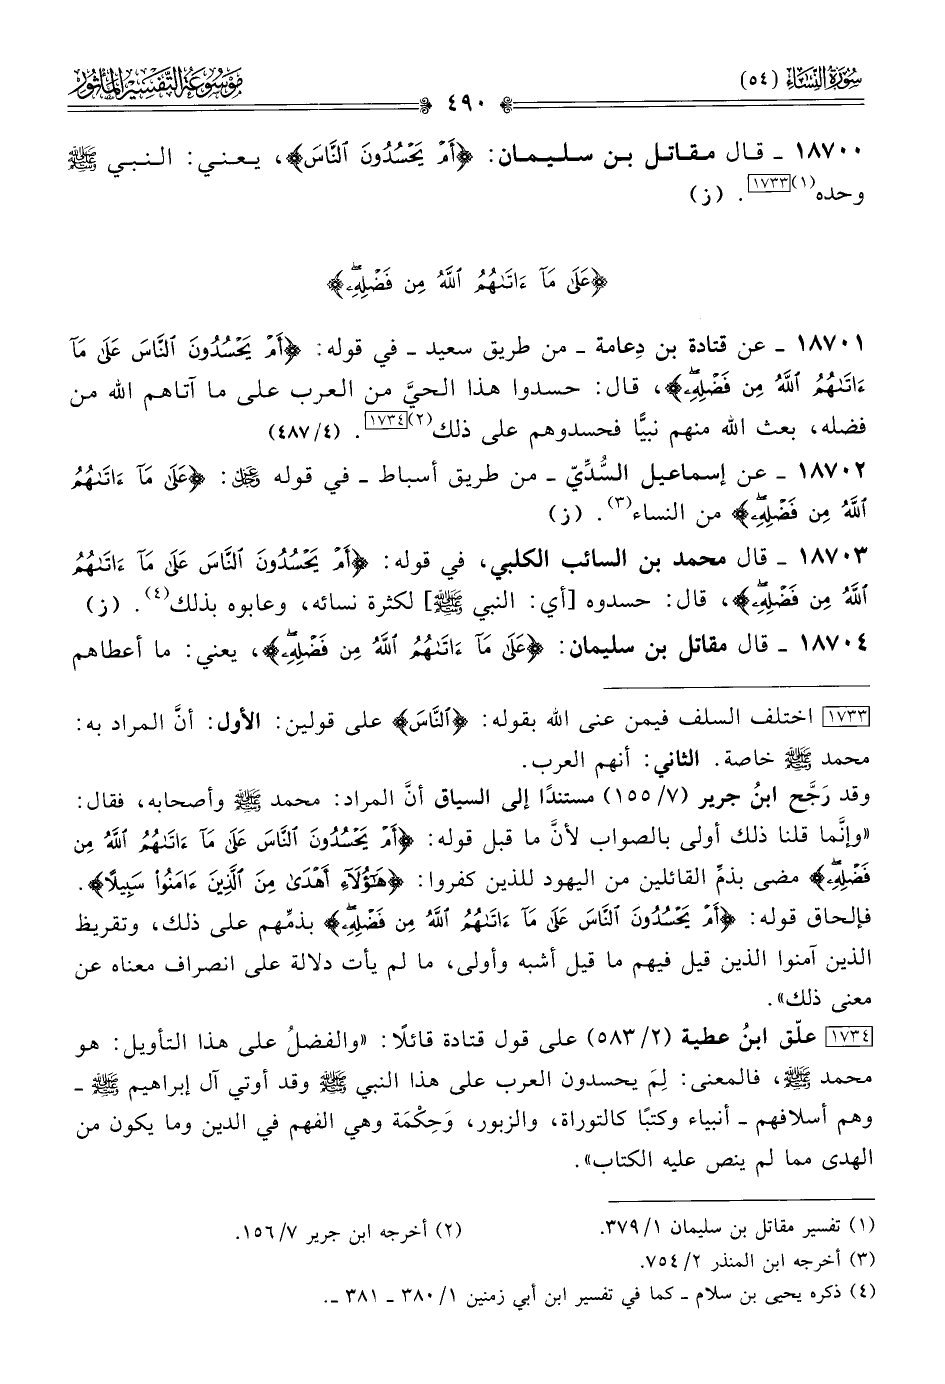 سُورَةُ النِّسَاءِ (٥٤)
٤٩٠
مَوْسُوعَةُ التَّفْسِيرِ المَأْثُورِ
١٨٧٠٠ ـ قال مقاتل بن سليمان: ﴿أَمْ يَحْسُدُونَ ٱلنَّاسَ﴾، يعني: النبي ﷺ
وحده(١)[١٧٣٣]. (ز)
﴿عَلَىٰ مَآ ءَاتَىٰهُمُ ٱللَّهُ مِن فَضْلِهِۦۖ﴾
١٨٧٠١ ـ عن قتادة بن دِعامة ـ من طريق سعيد ـ في قوله: ﴿أَمْ يَحْسُدُونَ ٱلنَّاسَ عَلَىٰ مَآ
ءَاتَىٰهُمُ ٱللَّهُ مِن فَضْلِهِۦۖ﴾، قال: حسدوا هذا الحيَّ من العرب على ما آتاهم الله من
فضله، بعث الله منهم نبيًّا فحسدوهم على ذلك(٢)[١٧٣٤]. (٤٨٧/٤)
١٨٧٠٢ ـ عن إسماعيل السُّدِّيّ ـ من طريق أسباط ـ في قوله ﷿: ﴿عَلَىٰ مَآ ءَاتَىٰهُمُ
ٱللَّهُ مِن فَضْلِهِۦۖ﴾ من النساء(٣). (ز)
١٨٧٠٣ ـ قال محمد بن السائب الكلبي، في قوله: ﴿أَمْ يَحْسُدُونَ ٱلنَّاسَ عَلَىٰ مَآ ءَاتَىٰهُمُ
ٱللَّهُ مِن فَضْلِهِۦۖ﴾، قال: حسدوه [أي: النبي ﷺ] لكثرة نسائه، وعابوه بذلك(٤). (ز)
١٨٧٠٤ ـ قال مقاتل بن سليمان: ﴿عَلَىٰ مَآ ءَاتَىٰهُمُ ٱللَّهُ مِن فَضْلِهِۦۖ﴾، يعني: ما أعطاهم
[١٧٣٣] اختلف السلف فيمن عنى الله بقوله: ﴿ٱلنَّاسَ﴾ على قولين: الأول: أنَّ المراد به:
محمد ﷺ خاصة. الثاني: أنهم العرب.
وقد رَجَّح ابنُ جرير (١٥٥/٧) مستندًا إلى السياق أنَّ المراد: محمد ﷺ وأصحابه، فقال:
«وإنَّما قلنا ذلك أولى بالصواب لأنَّ ما قبل قوله: ﴿أَمْ يَحْسُدُونَ ٱلنَّاسَ عَلَىٰ مَآ ءَاتَىٰهُمُ ٱللَّهُ مِن
فَضْلِهِۦۖ﴾ مضى بذمِّ القائلين من اليهود للذين كفروا: ﴿هَٰٓؤُلَآءِ أَهْدَىٰ مِنَ ٱلَّذِينَ ءَامَنُوا۟ سَبِيلًا﴾.
فإلحاق قوله: ﴿أَمْ يَحْسُدُونَ ٱلنَّاسَ عَلَىٰ مَآ ءَاتَىٰهُمُ ٱللَّهُ مِن فَضْلِهِۦۖ﴾ بذمِّهم على ذلك، وتقريظ
الذين آمنوا الذين قيل فيهم ما قيل أشبه وأولى، ما لم يأت دلالة على انصراف معناه عن
معنى ذلك».
[١٧٣٤] علّق ابنُ عطية (٥٨٣/٢) على قول قتادة قائلًا: «والفضلُ على هذا التأويل: هو
محمد ﷺ، فالمعنى: لِمَ يحسدون العرب على هذا النبي ﷺ وقد أوتي آل إبراهيم ﷺ ـ
وهم أسلافهم ـ أنبياء وكتبًا كالتوراة، والزبور، وَحِكْمَة وهي الفهم في الدين وما يكون من
الهدى مما لم ينص عليه الكتاب».
(١) تفسير مقاتل بن سليمان ٣٧٩/١. (٢) أخرجه ابن جرير ١٥٦/٧.
(٣) أخرجه ابن المنذر ٧٥٤/٢.
(٤) ذكره يحيى بن سلام ـ كما في تفسير ابن أبي زمنين ٣٨٠/١ ـ ٣٨١ ـ.